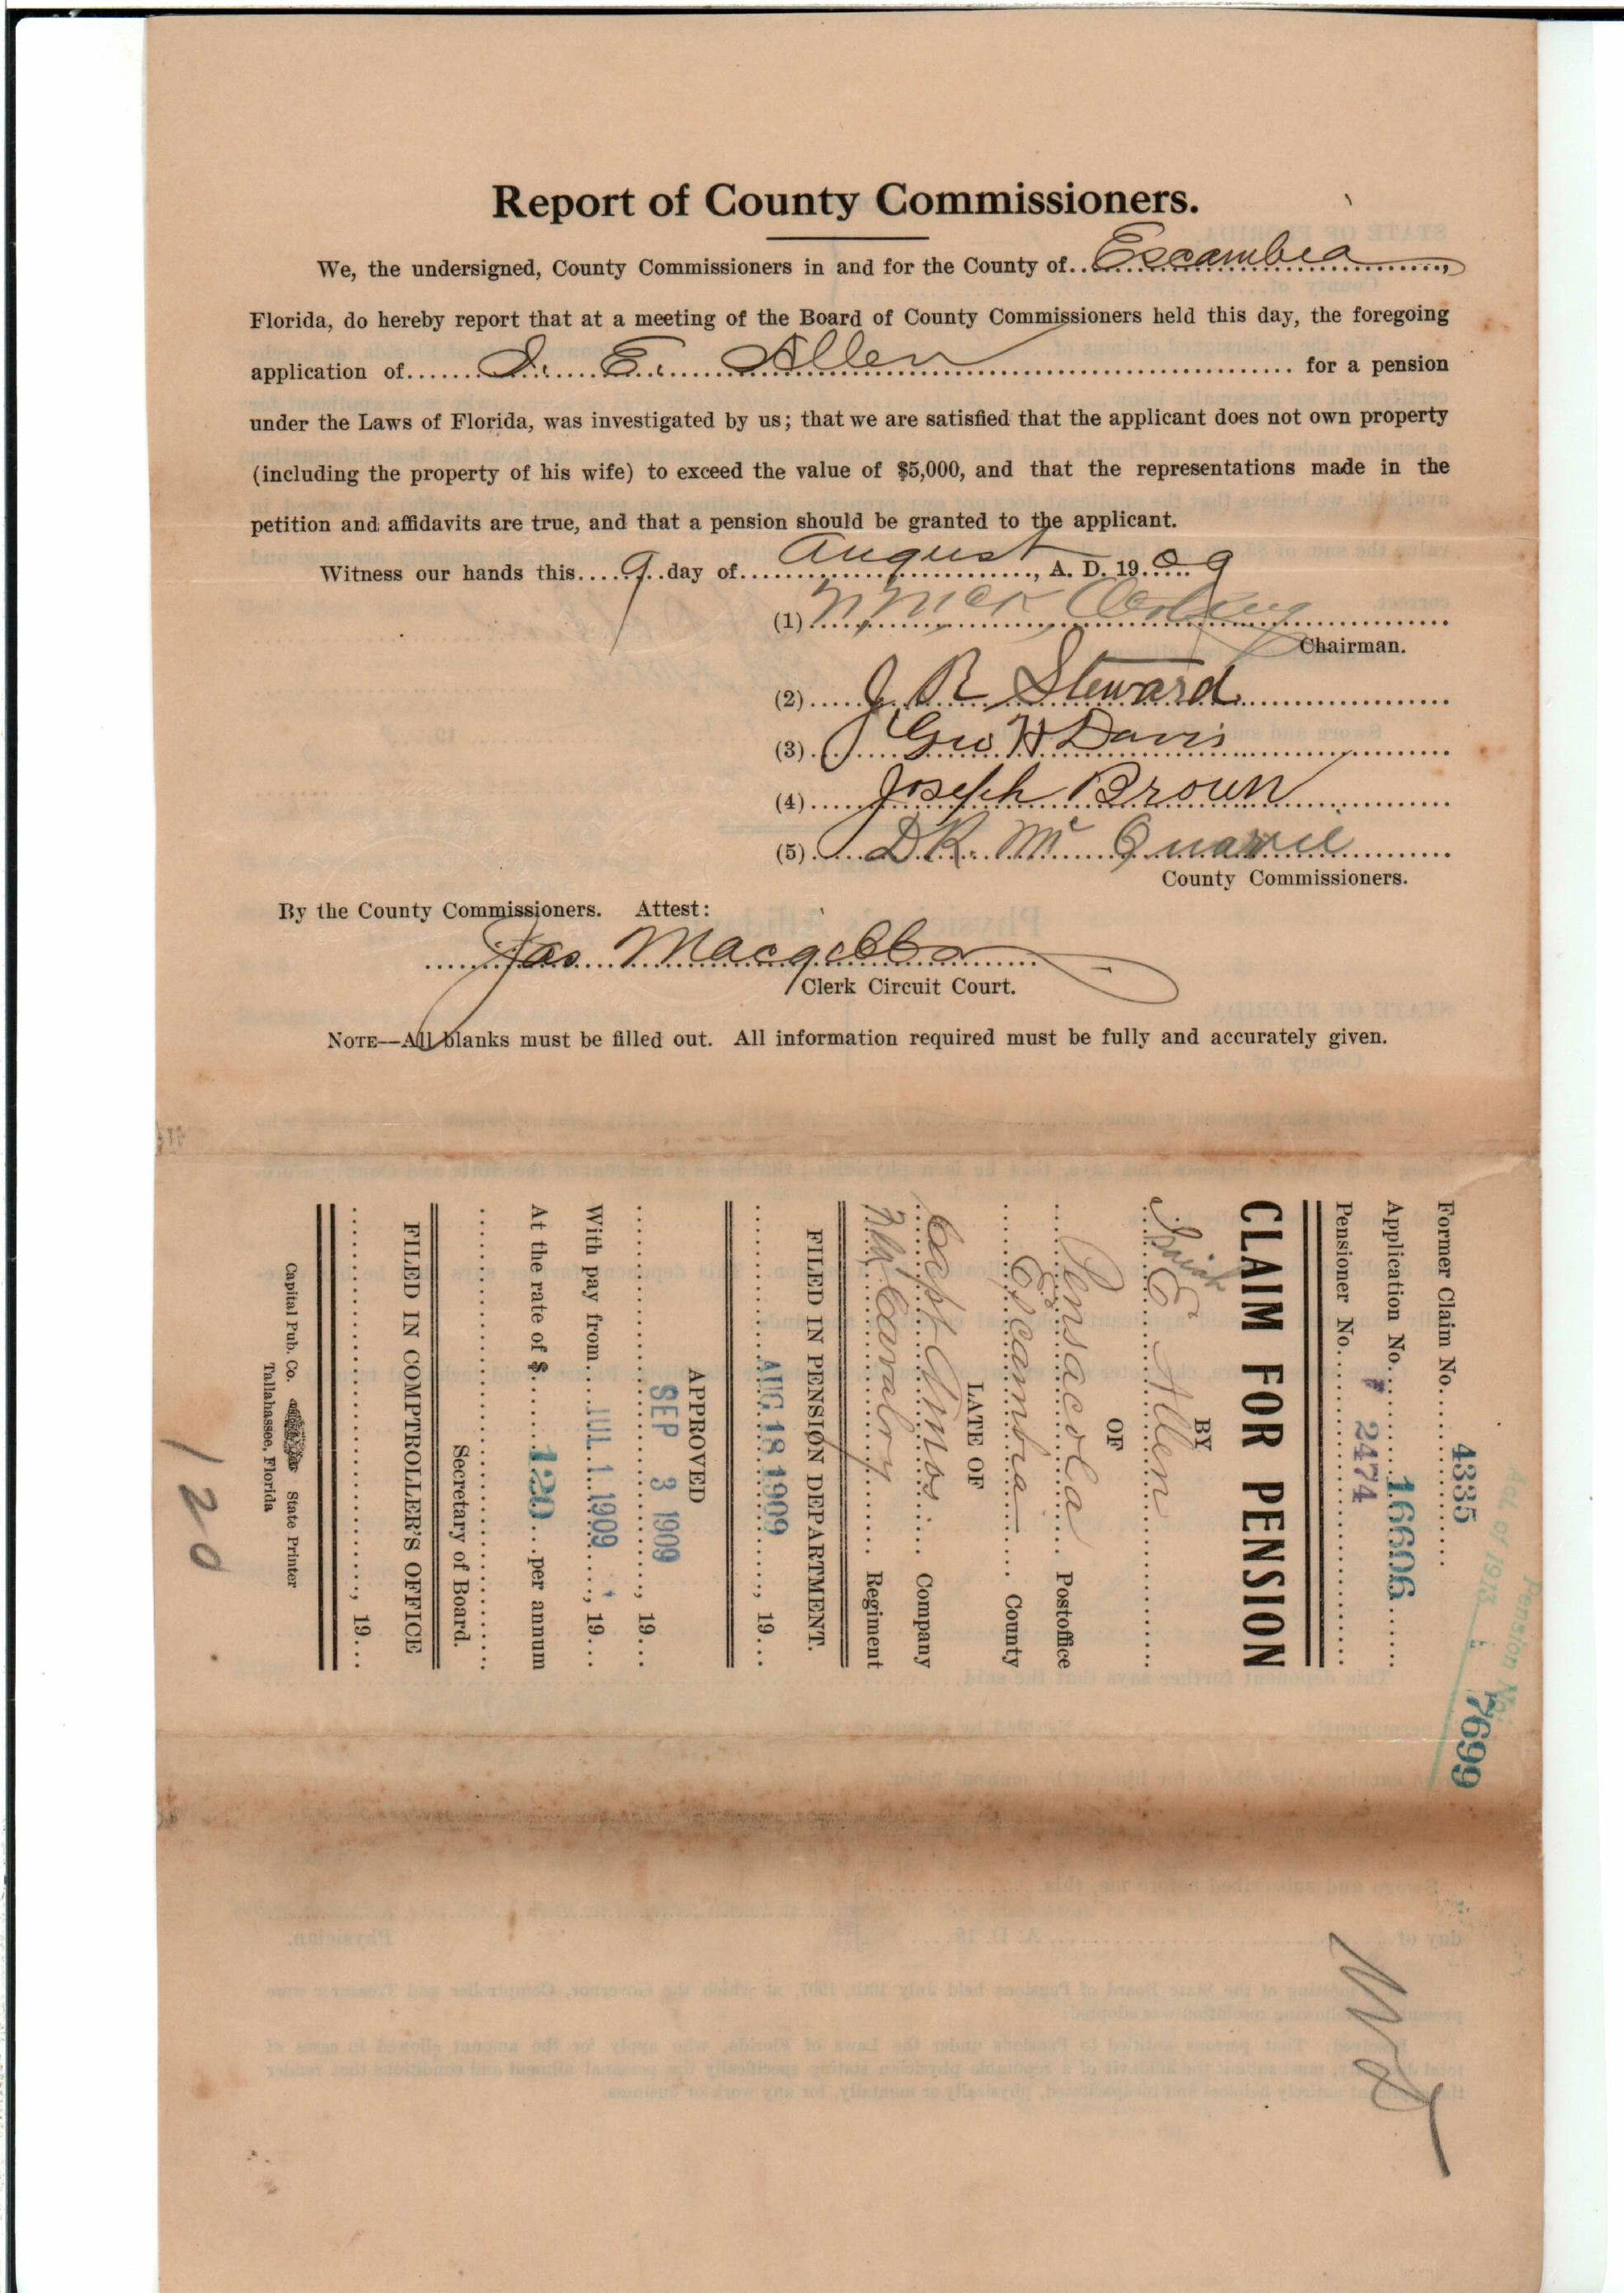 Report of County Commissioners.
We, the undersigned, County Commissioners in and for the County of..Escambia........,
Florida, do hereby report that at a meeting of the Board of County Commissioners held this day, the foregoing
application of....... I. E. Allen ........ for a pension
under the Laws of Florida, was investigated by us; that we are satisfied that the applicant does not own property
(including the property of his wife) to exceed the value of $5,000, and that the representations made in the
petition and affidavits are true, and that a pension should be granted to the applicant.
Witness our hands this....9..day of....August......, A. D. 19.09
(1)
Chairman.
(2)..... J. R. Steward
(3)..... Geo H Davis
(4)..... Joseph Brown
(5)..... D K. Mc
County Commissioners.
By the County Commissioners. Attest:
Jas Macgibbon
Clerk Circuit Court.
NOTE—All blanks must be filled out. All information required must be fully and accurately given.
Act of 1913
Pension No.
7699
Former Claim No..... 4335
Application No..... 16606
Pensioner No..... 2474
CLAIM FOR PENSION
BY
E Allen
OF
Pensacola .... Postoffice
Escambia .... County
LATE OF
Capt Amos .... Company
Cavalry .... Regiment
FILED IN PENSION DEPARTMENT.
AUG 18 1909 ...., 19...
APPROVED
SEP 3 1909 ...., 19...
With pay from.... JUL 1 1909 ...., 19...
At the rate of $.... 120 ...per annum
Secretary of Board.
FILED IN COMPTROLLER'S OFFICE
...., 19...
Capital Pub. Co. State Printer
Tallahassee, Florida
120